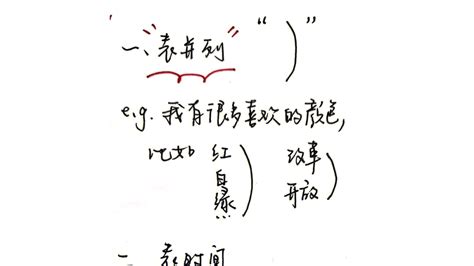 一、"表并列" “ ）”
e.g. 我有很多喜欢的颜色,
比如 红 ） 改革 ）
白 开放
绿…
表时间